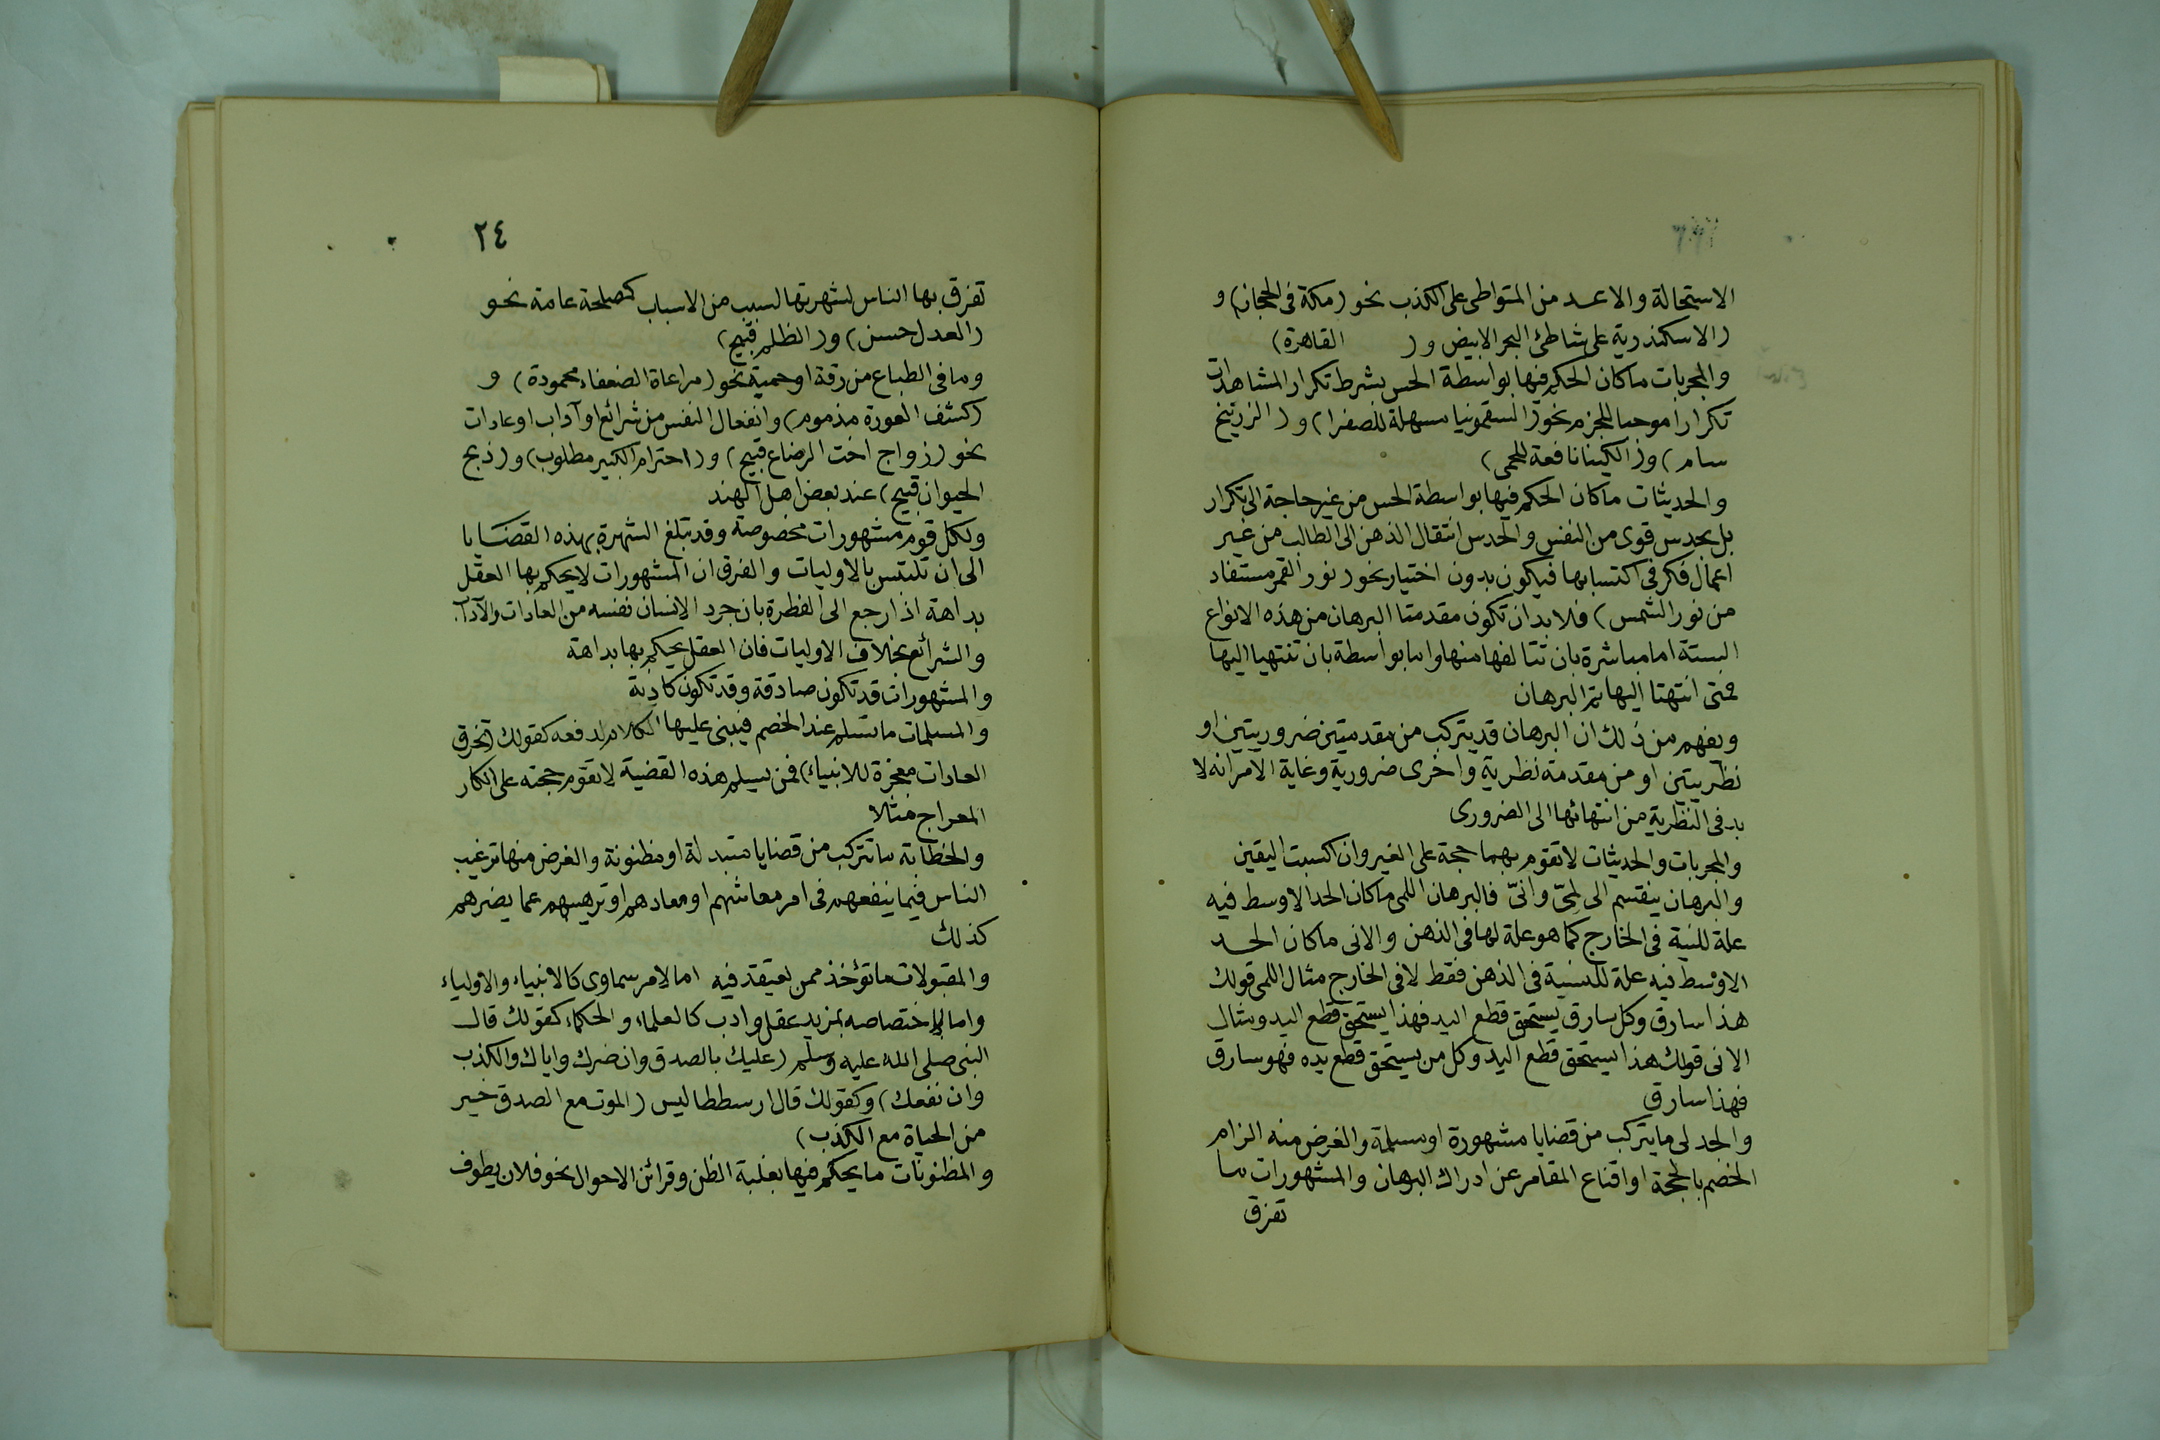 الاستحالة والاعد من المتواطى على الكذب نحو (مكة فى الحجاز) و
(الاسكندرية على شاطئ البحر الابيض و ( القاهرة)
والمجربات ماكان الحكم فيها بواسطة الحس بشرط تكرار المشاهدات
تكرارا موجبا للجزم نحو (السقمونيا مسهلة للصفرا) و (الزرنيخ
سام) و (الكينا نافعة للحمى)
والحديثات ماكان الحكم فيها بواسطة الحس من غير حاجة الى تكرار
بل بحدس قوى من النفس والحدس انتقال الذهن الى الطالب من غير
اعمال فكر فى اكتسابها فيكون بدون اختيار نحو (نور القمر مستفاد
من نور الشمس) فلا بد ان تكون مقدمتا البرهان من هذه الانواع
الستة اما مباشرة بان تتالفها منها واما بواسطة بان تنتهيا اليها
فمتى انتهتا اليها تم البرهان
ويفهم من ذلك ان البرهان قد يتركب من مقدمتين ضروريتين او
نظريتين او من مقدمة نظرية واخرى ضرورية وغاية الامر انه لا
بد فى النظرية من انتهائها الى الضرورى
والمجربات والحديثات لا تقوم بهما حجة على الغير وان اكسبت اليقين
والبرهان ينقسم الى لمىّ وانىّ فالبرهان اللمى ماكان الحد الاوسط فيه
علة للنسبة فى الخارج كما هو علة لها فى الذهن والانى ماكان الحد
الاوسط فيه علة للنسبة فى الذهن فقط لا فى الخارج مثال اللمى قولك
هذا سارق وكل سارق يستحق قطع اليد فهذا يستحق قطع اليد ومثال
الانى قولك هذا يستحق قطع اليد وكل من يستحق قطع يده فهو سارق
فهذا سارق
والجدلى ما يتركب من قضايا مشهورة او مسلمة والغرض منه الزام
الخصم بالحجة او اقناع المقامر عن ادراك البرهان والمشهورات ما
تفرق
٢٤
تفرق بها الناس لشهرتها لسبب من الاسباب كمصلحة عامة نحو
(العدل حسن) و (الظلم قبيح)
وما فى الطباع من رقة او حمية نحو (مراعاة الضعفاء محمودة) و
(كشف العورة مذموم) وانفعال النفس من شرائع او آداب او عادات
نحو (زواج اخت الرضاع قبيح) و (احترام الكبير مطلوب) و (ذبح
الحيوان قبيح) عند بعض اهل الهند
ولكل قوم مشهورات مخصوصة وقد تبلغ الشهرة بهذه القضايا
الى ان تلتبس بالاوليات والفرق ان المشهورات لا يحكم بها العقل
بداهة اذا رجع الى الفطرة بان جرد الانسان نفسه من العادات والآداب
والشرائع بخلاف الاوليات فان العقل يحكم بها بداهة
والمشهورات قد تكون صادقة وقد تكون كاذبة
والمسلمات ما تسلم عند الخصم فيبنى عليها الكلام لدفعه كقولك (تخرق
العادات معجزة للانبياء) فمن يسلم هذه القضية لا تقوم حجته على انكار
المعراج مثلا
والخطابة ما تتركب من قضايا متبدلة او مظنونة والغرض منها ترغيب
الناس فيما ينفعهم فى امر معاشهم او معادهم او ترهيبهم عما يضرهم
كذلك
والمقبولات ما تؤخذ ممن يعتقد فيه اما لامر سماوى كالانبياء والاولياء
واما لاختصاصه بمزيد عقل وادب كالعلماء والحكماء كقولك قال
النبى صلى الله عليه وسلم (عليك بالصدق وان ضرك واياك والكذب
وان نفعك) وكقولك قال ارسططاليس (الموت مع الصدق خير
من الحياة مع الكذب)
والمظنونات ما يحكم فيها بغلبة الظن وقرائن الاحوال نحو فلان يطوف